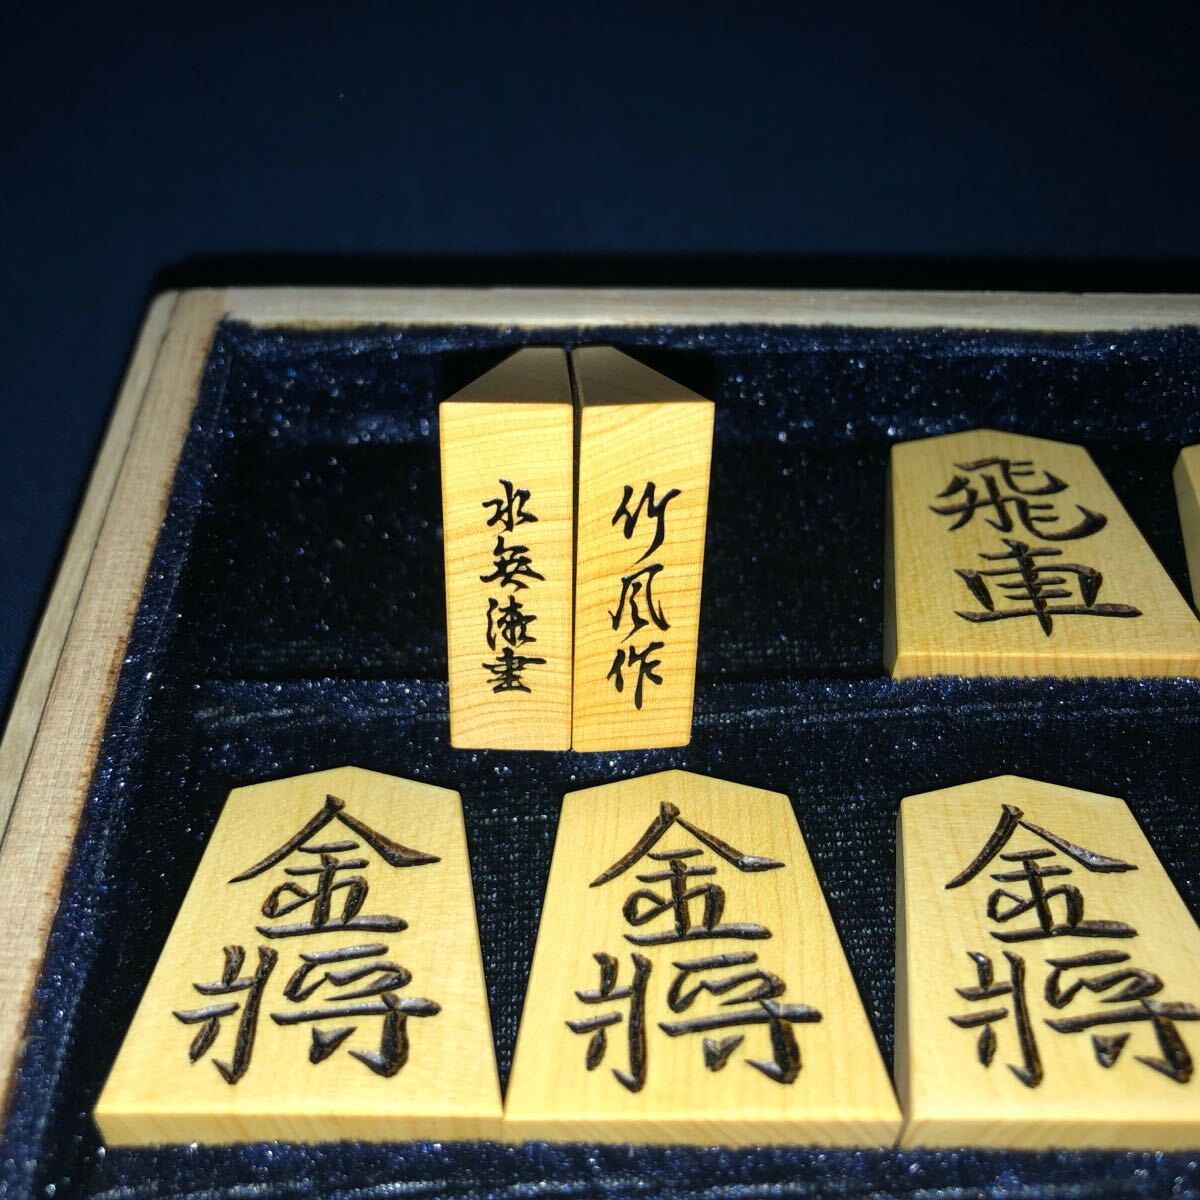 水無瀬書
竹風作
飛車
金將
金將
金將